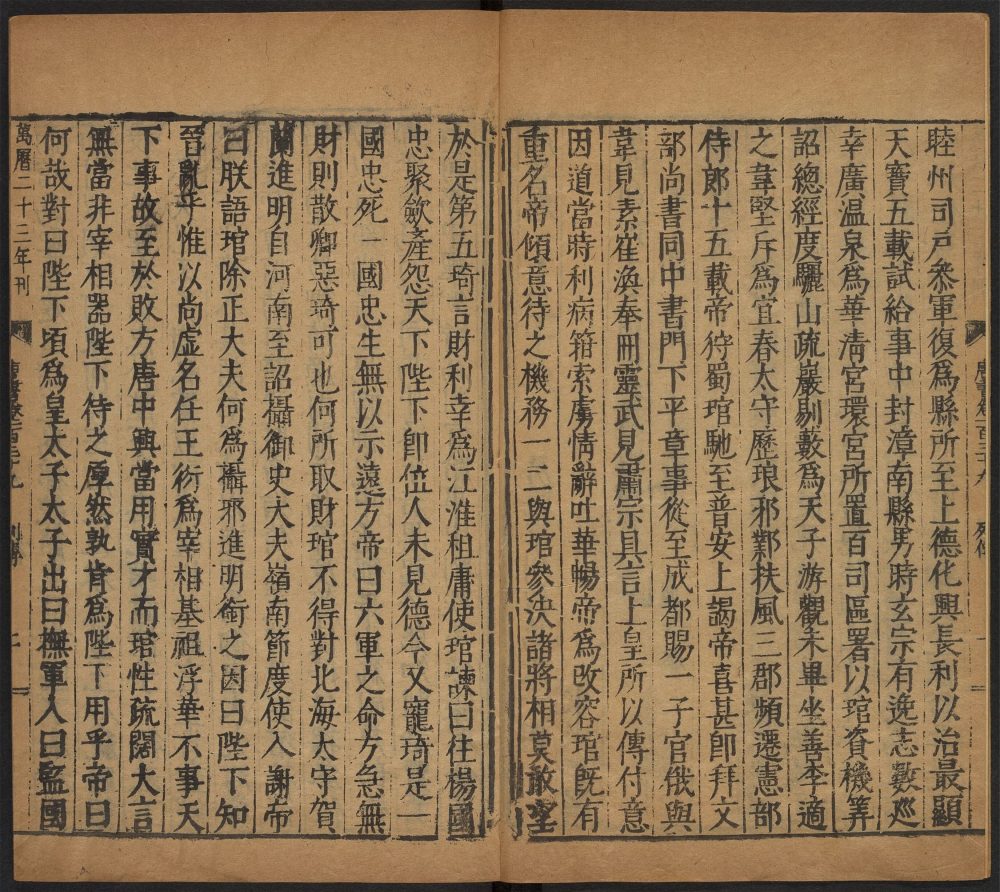 睦州司戶參軍復爲縣所至上德化興長利以治最顯
天寶五載試給事中封漳南縣男時玄宗有逸志數巡
幸廣溫泉爲華清宮環宮所置百司區署以琯資機筭
詔總經度驪山疏巖剔藪爲天子游觀未畢坐善李適
之韋堅斥爲宜春太守歷琅邪鄴扶風三郡頻遷憲部
侍郎十五載帝狩蜀琯馳至普安上謁帝喜甚卽拜文
部尚書同中書門下平章事從至成都賜一子官俄與
韋見素崔渙奉冊靈武見肅宗具言上皇所以傳付意
因道當時利病箝索虜情辭吐華暢帝爲改容琯旣有
重名帝傾意待之機務一二與琯參決諸將相莫敢望
於是第五琦言財利幸爲江淮租庸使琯諫曰往楊國
忠聚斂產怨天下陛下卽位人未見德今又寵琦是一
國忠死一國忠生無以示遠方帝曰六軍之命方急無
財則散卿惡琦可也何所取財琯不得對北海太守賀
蘭進明自河南至詔攝御史大夫嶺南節度使入謝帝
曰朕語琯除正大夫何爲攝邪進明銜之因曰陛下知
晉亂乎惟以尚虛名任王衍爲宰相基祖浮華不事天
下事故至於敗方唐中興當用實才而琯性疏闊大言
無當非宰相器陛下待之厚然孰肯爲陛下用乎帝曰
何哉對曰陛下頃爲皇太子太子出曰撫軍入曰監國
萬曆二十三年刊
唐書卷一百三十九 列傳 二